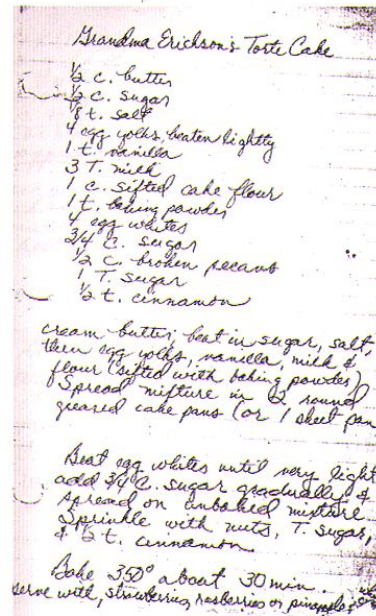 Grandma Erickson's Torte Cake
½ c. butter
½ c. sugar
⅛ t. salt
4 egg yolks, beaten lightly
1 t. vanilla
3 T. milk
1 c. sifted cake flour
1 t. baking powder
4 egg whites
3/4 c. sugar
½ c. broken pecans
1 T. sugar
½ t. cinnamon
cream butter, beat in sugar, salt,
then egg yolks, vanilla, milk &
flour (sifted with baking powder)
Spread mixture in 2 round
greased cake pans (or 1 sheet pan
Beat egg whites until very light
add 3/4 c. sugar gradually &
spread on unbaked mixture
Sprinkle with nuts, T. sugar,
& ½ t. cinnamon
Bake 350° about 30 min.
serve with strawberries, rasberries or pineapple &